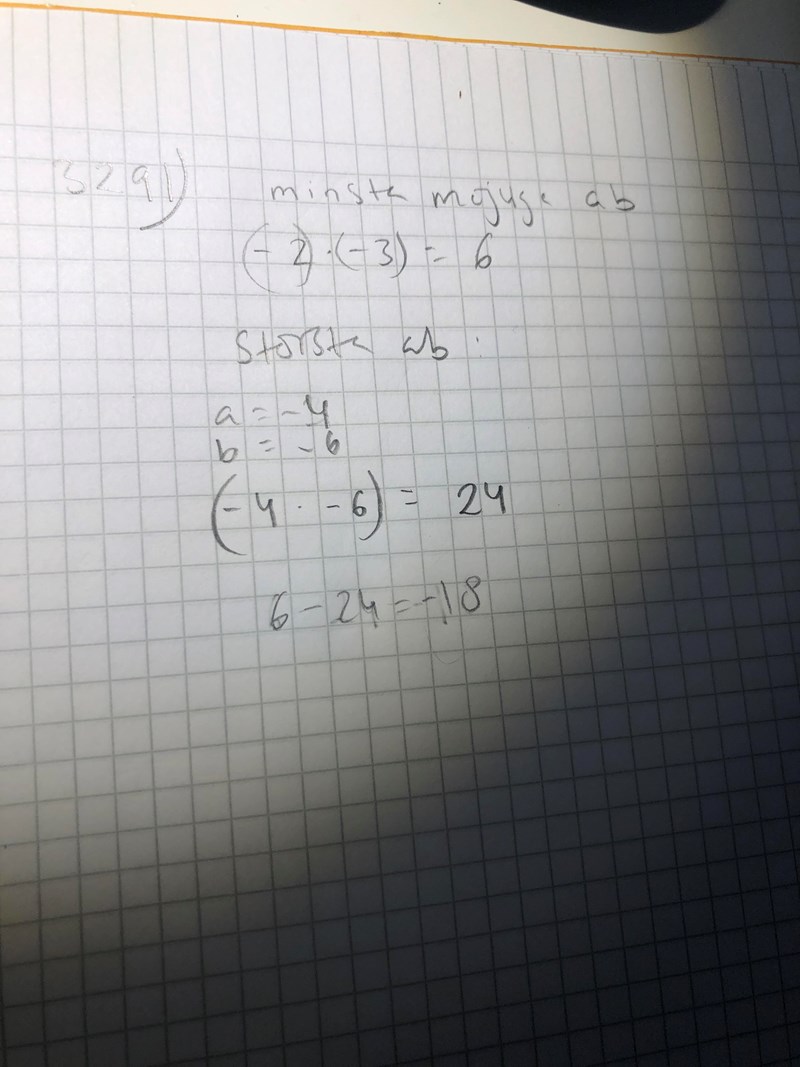 3291)
minsta möjliga ab
(-2)·(-3) = 6
största ab :
a = -4
b = -6
(-4 · -6) = 24
6 - 24 = -18